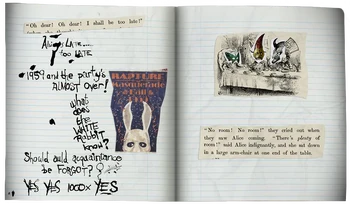 "Oh dear! Oh dear! I shall be too late!"
AM I LATE...
TOO LATE
1959 and the party's
ALMOST OVER!
what
does
the
WHITE
Rabbit
know?
Should auld acquaintance
be FORGOT?
YES YES 1000x YES
RAPTURE
Masquerade
Ball
1959
"No room! No room!" they cried out when
they saw Alice coming. "There's plenty of
room!" said Alice indignantly, and she sat down
in a large arm-chair at one end of the table.